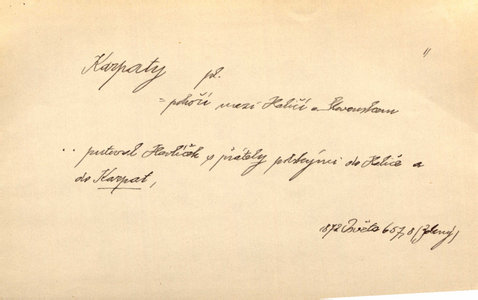 "
Karpaty pl.
= pohoří mezi Haličí a Slovenskem
.. putoval Havlíček s přátely polskými do Haliče a
do Karpat,
872 Osvěta 657, 8 (Zelený)